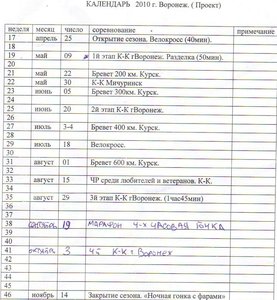 КАЛЕНДАРЬ 2010 г. Воронеж. ( Проект)
неделя месяц число соревнование примечание
17 апрель 25 Открытие сезона. Велокросс (40мин).
18
19 май 09 1й этап К-К гВоронеж. Разделка (50мин).
20
21 май 22 Бревет 200 км. Курск.
22 май 30 К-К Мичуринск
23 июнь 05 Бревет 300км. Курск.
24
25 июнь 20 2й этап К-К гВоронеж.
26
27 июль 3-4 Бревет 400 км. Курск.
28
29 июль 18 Велокросс.
30
31 август 01 Бревет 600 км. Курск.
32
33 август 15 ЧР среди любителей и ветеранов. К-К.
34
35 август 29 3й этап К-К гВоронеж. (1час45мин)
36
37
38 сентябрь 19 МАРАФОН 4-х ЧАСОВАЯ ГОНКА
39
40
41 октябрь 3 4й К-К г Воронеж
42
43
44
45
46 ноябрь 14 Закрытие сезона. «Ночная гонка с фарами»